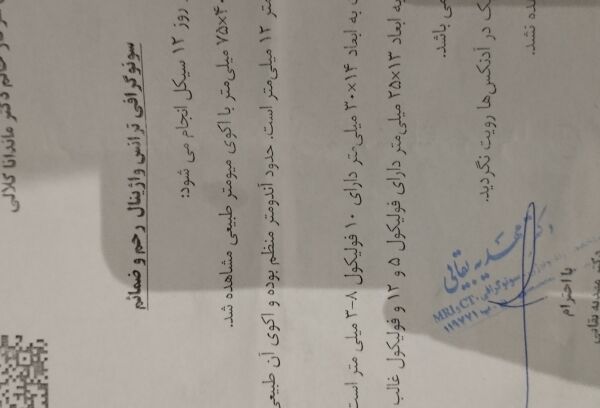 سرکار خانم دکتر ماندانا کلالی
سونوگرافی ترانس واژینال رحم و ضمائم
روز ۱۲ سیکل انجام می شود:
۷۵×۴۰ میلی‌متر با اکوی میومتر طبیعی مشاهده شد.
متر ۱۲ میلی‌متر است. حدود آندومتر منظم بوده و اکوی آن طبیعی
به ابعاد ۳۰×۱۴ میلی‌متر دارای ۱۰ فولیکول ۸-۳ میلی متر است
به ابعاد ۲۵×۱۳ میلی‌متر دارای فولیکول ۵ و ۱۲ و فولیکول غالب
می باشد.
ک در آدنکس‌ها رویت نگردید.
ده نشد.
دکتر مهدیه بقائی
سونوگرافی، CT و MRI
۱۱۹۷۷۱
با احترام
دکتر مهدیه بقائی